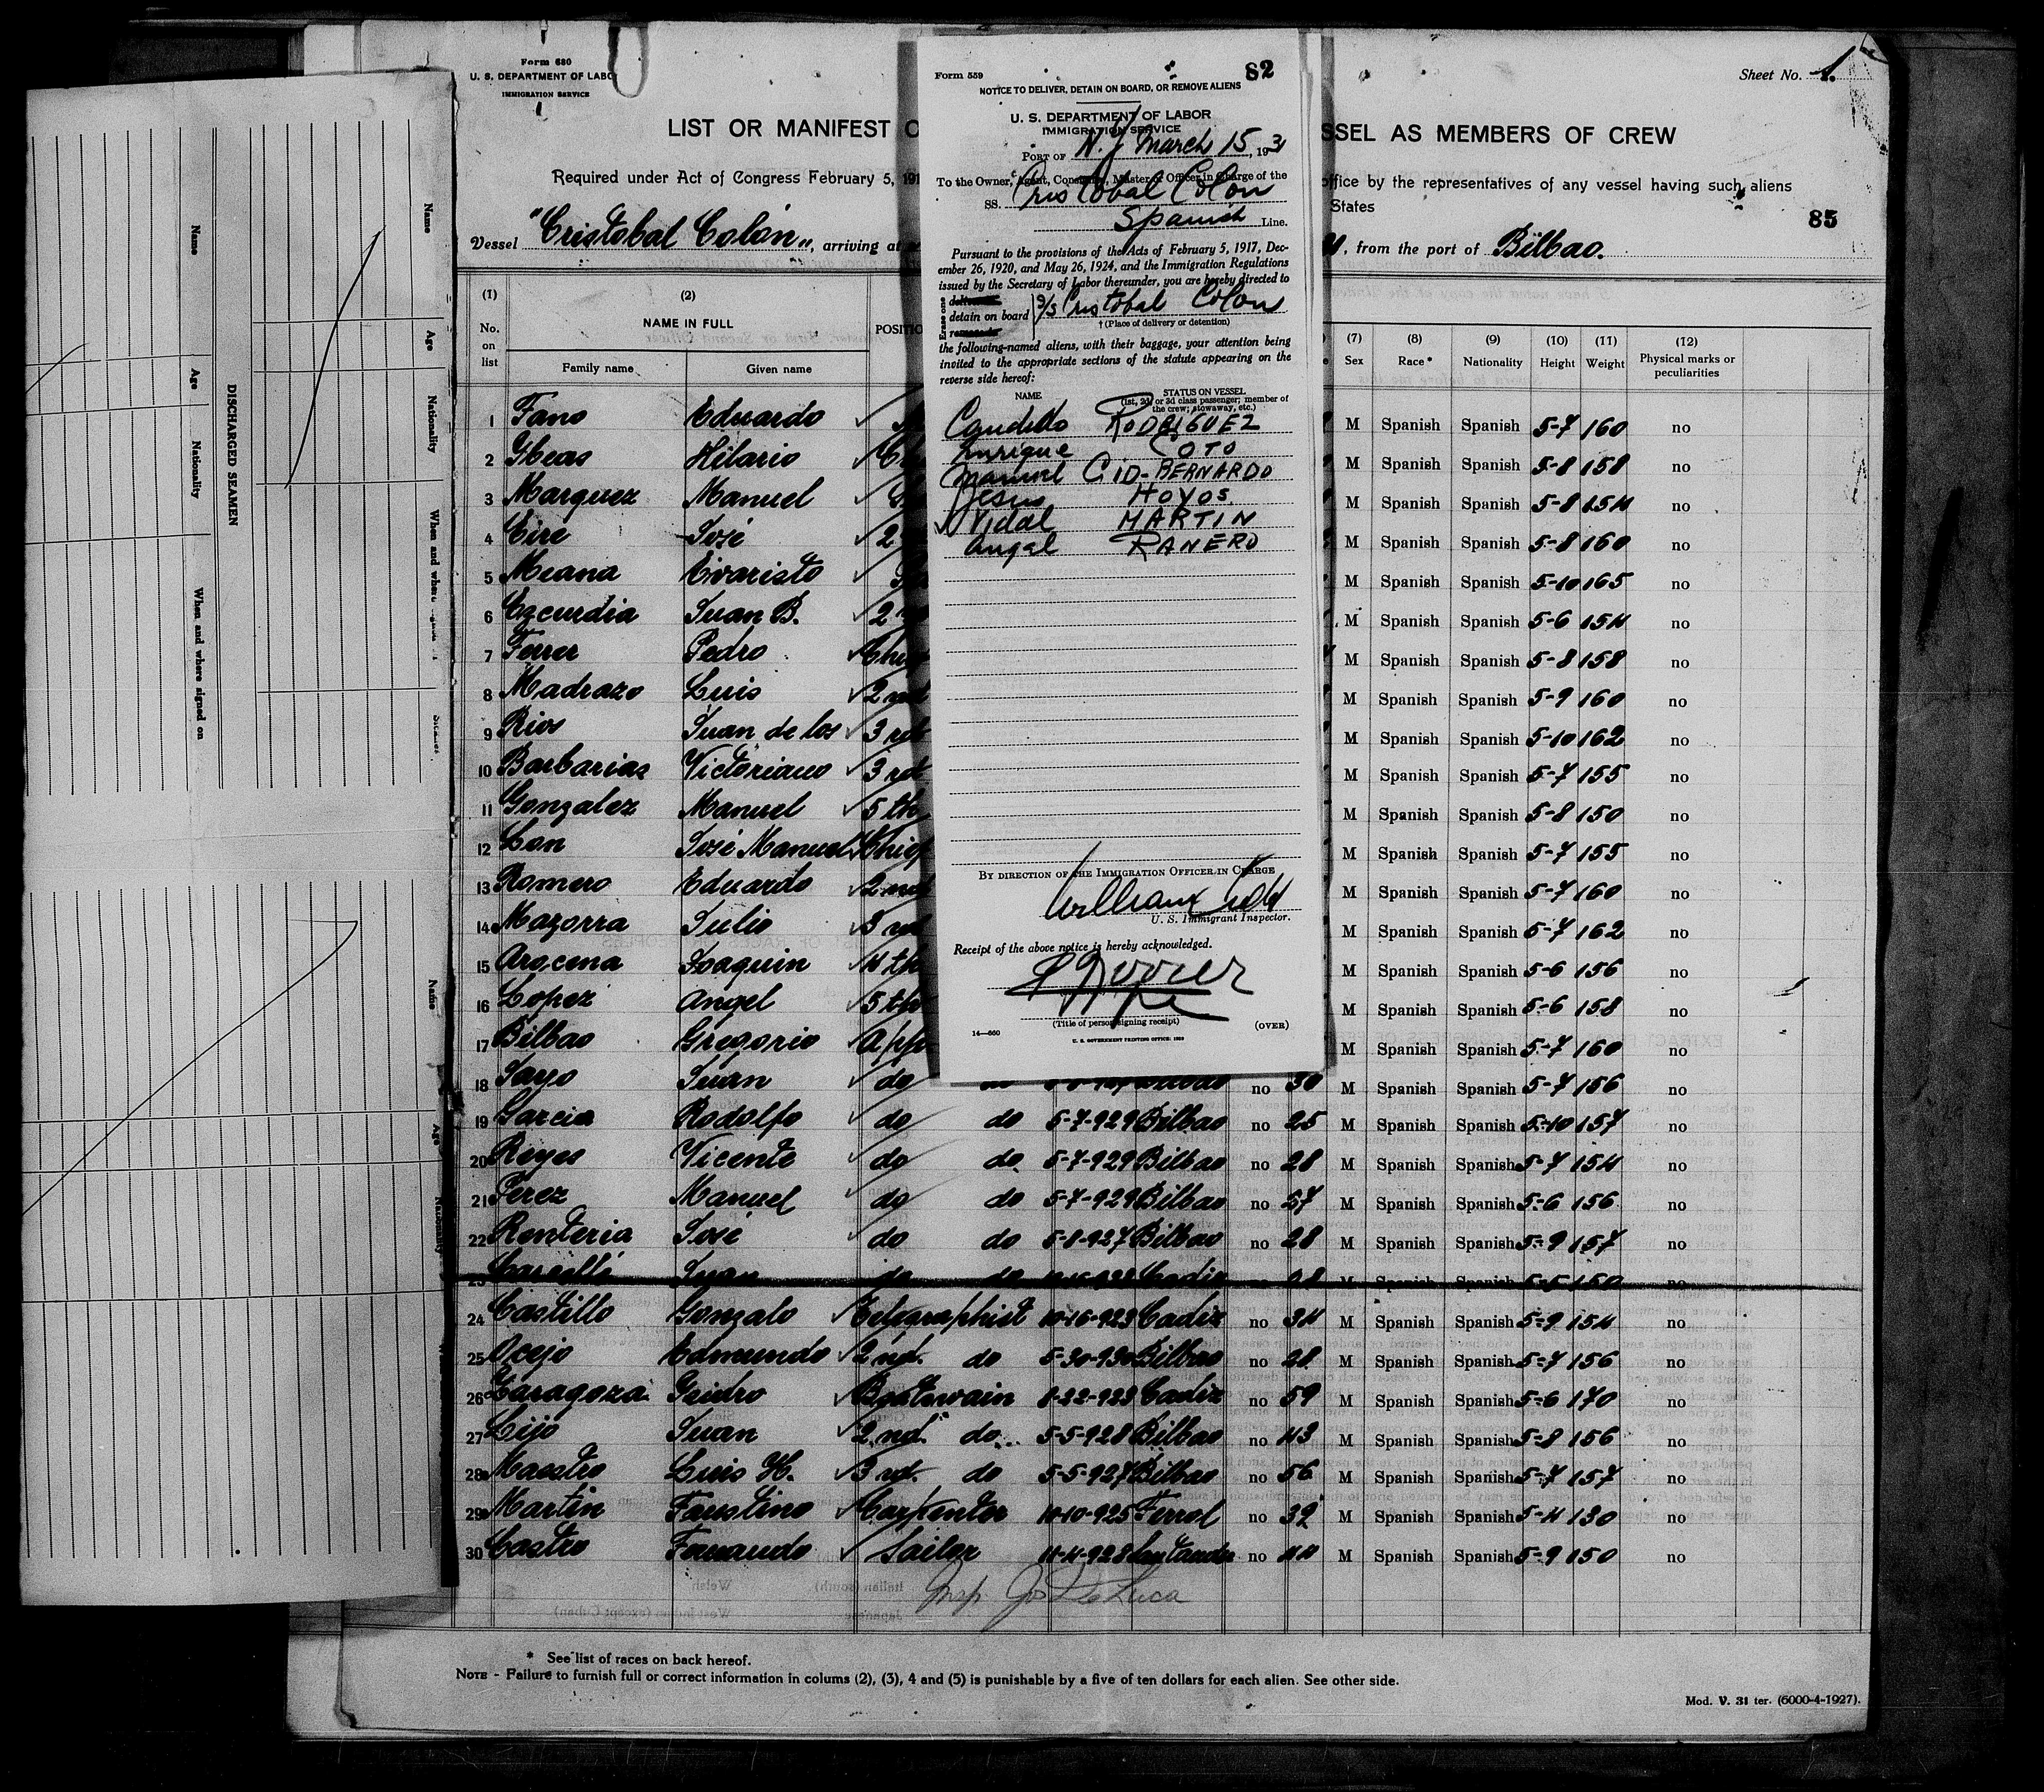 Form 680
U. S. DEPARTMENT OF LABO
IMMIGRATION SERVICE
Sheet No. 1.
LIST OR MANIFEST O
SSEL AS MEMBERS OF CREW
Required under Act of Congress February 5, 191
office by the representatives of any vessel having such aliens
States
85
Vessel "Cristobal Colón", arriving at
, from the port of Bilbao.
(1) (2)
No. on list
NAME IN FULL
POSITIO
Family name Given name
(7) (8) (9) (10) (11) (12)
Sex Race* Nationality Height Weight Physical marks or peculiarities
1 Fano Eduardo M Spanish Spanish 5-7 160 no
2 Gbeas Hilario M Spanish Spanish 5-8 158 no
3 Marquez Manuel M Spanish Spanish 5-8 154 no
4 Eire José 2 M Spanish Spanish 5-8 160 no
5 Meana Evaristo M Spanish Spanish 5-10 165 no
6 Ezcurdia Juan B. 2 M Spanish Spanish 5-6 154 no
7 Ferrer Pedro Chie M Spanish Spanish 5-8 158 no
8 Madrazo Luis 2nd M Spanish Spanish 5-9 160 no
9 Rios Juan de los 3rd M Spanish Spanish 5-10 162 no
10 Barbarias Victoriano 3rd M Spanish Spanish 5-7 155 no
11 Gonzalez Manuel 5th M Spanish Spanish 5-8 150 no
12 Lan José Manuel Chief M Spanish Spanish 5-7 155 no
13 Romero Eduardo 2nd M Spanish Spanish 5-7 160 no
14 Mazorra Julio 3rd M Spanish Spanish 5-7 162 no
15 Arocena Joaquin 4th M Spanish Spanish 5-6 156 no
16 Lopez Angel 5th M Spanish Spanish 5-6 158 no
17 Bilbao Gregorio App M Spanish Spanish 5-7 160 no
18 Sayo Juan do no 30 M Spanish Spanish 5-7 156 no
19 Garcia Rodolfo do do 5-7-929 Bilbao no 25 M Spanish Spanish 5-10 157 no
20 Reyes Vicente do do 5-7-929 Bilbao no 28 M Spanish Spanish 5-7 154 no
21 Perez Manuel do do 5-7-929 Bilbao no 27 M Spanish Spanish 5-6 156 no
22 Renteria José do do 5-8-927 Bilbao no 28 M Spanish Spanish 5-9 157 no
23 Juan do do Cadiz M Spanish Spanish 5-5 150 no
24 Castillo Gonzalo Telegraphist 10-16-923 Cadiz no 34 M Spanish Spanish 5-9 154 no
25 Ocejo Edmundo 2nd. do 5-30-930 Bilbao no 28 M Spanish Spanish 5-7 156 no
26 Zaragoza Isidro Boatswain 8-22-923 Cadiz no 59 M Spanish Spanish 5-6 170 no
27 Lijo Juan 2nd. do 5-5-928 Bilbao no 43 M Spanish Spanish 5-8 156 no
28 Maestro Luis H. 3rd. do 5-5-927 Bilbao no 56 M Spanish Spanish 5-7 157 no
29 Martin Faustino Carpenter 10-10-925 Ferrol no 39 M Spanish Spanish 5-4 130 no
30 Castro Fernando Sailor 11-4-928 Santander no 44 M Spanish Spanish 5-9 150 no
Insp. Jos De Luca
* See list of races on back hereof.
NOTE - Failure to furnish full or correct information in colums (2), (3), 4 and (5) is punishable by a five of ten dollars for each alien. See other side.
Mod. V. 31 ter. (6000-4-1927).
Form 559
82
NOTICE TO DELIVER, DETAIN ON BOARD, OR REMOVE ALIENS
U. S. DEPARTMENT OF LABOR
IMMIGRATION SERVICE
PORT OF N.Y March 15, 193
To the Owner, Agent, Consignee, Master or Officer in Charge of the
SS. Cristobal Colon
Spanish Line.
Pursuant to the provisions of the Acts of February 5, 1917, Dec-
ember 26, 1920, and May 26, 1924, and the Immigration Regulations
issued by the Secretary of Labor thereunder, you are hereby directed to
Erase one
detain on board S/S Cristobal Colon
† (Place of delivery or detention)
the following-named aliens, with their baggage, your attention being
invited to the appropriate sections of the statute appearing on the
reverse side hereof:
NAME
STATUS ON VESSEL
(1st, 2d, or 3d class passenger; member of
the crew; stowaway, etc.)
Candido RODRIGUEZ
Enrique COTO
Manuel CID-BERNARDO
Jesus HOYOS.
Vidal MARTIN
Angel RANERO
BY DIRECTION OF THE IMMIGRATION OFFICER IN CHARGE
U. S. Immigrant Inspector.
Receipt of the above notice is hereby acknowledged.
(Title of person signing receipt)
14—660
(OVER)
U. S. GOVERNMENT PRINTING OFFICE: 1928
DISCHARGED SEAMEN
Name Age Nationality When and where signed on
Name Age Nationality When and where
Name Age Nationality